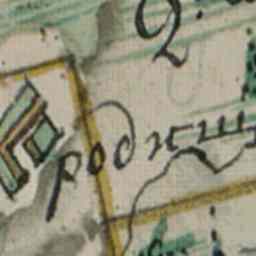 2
родищ